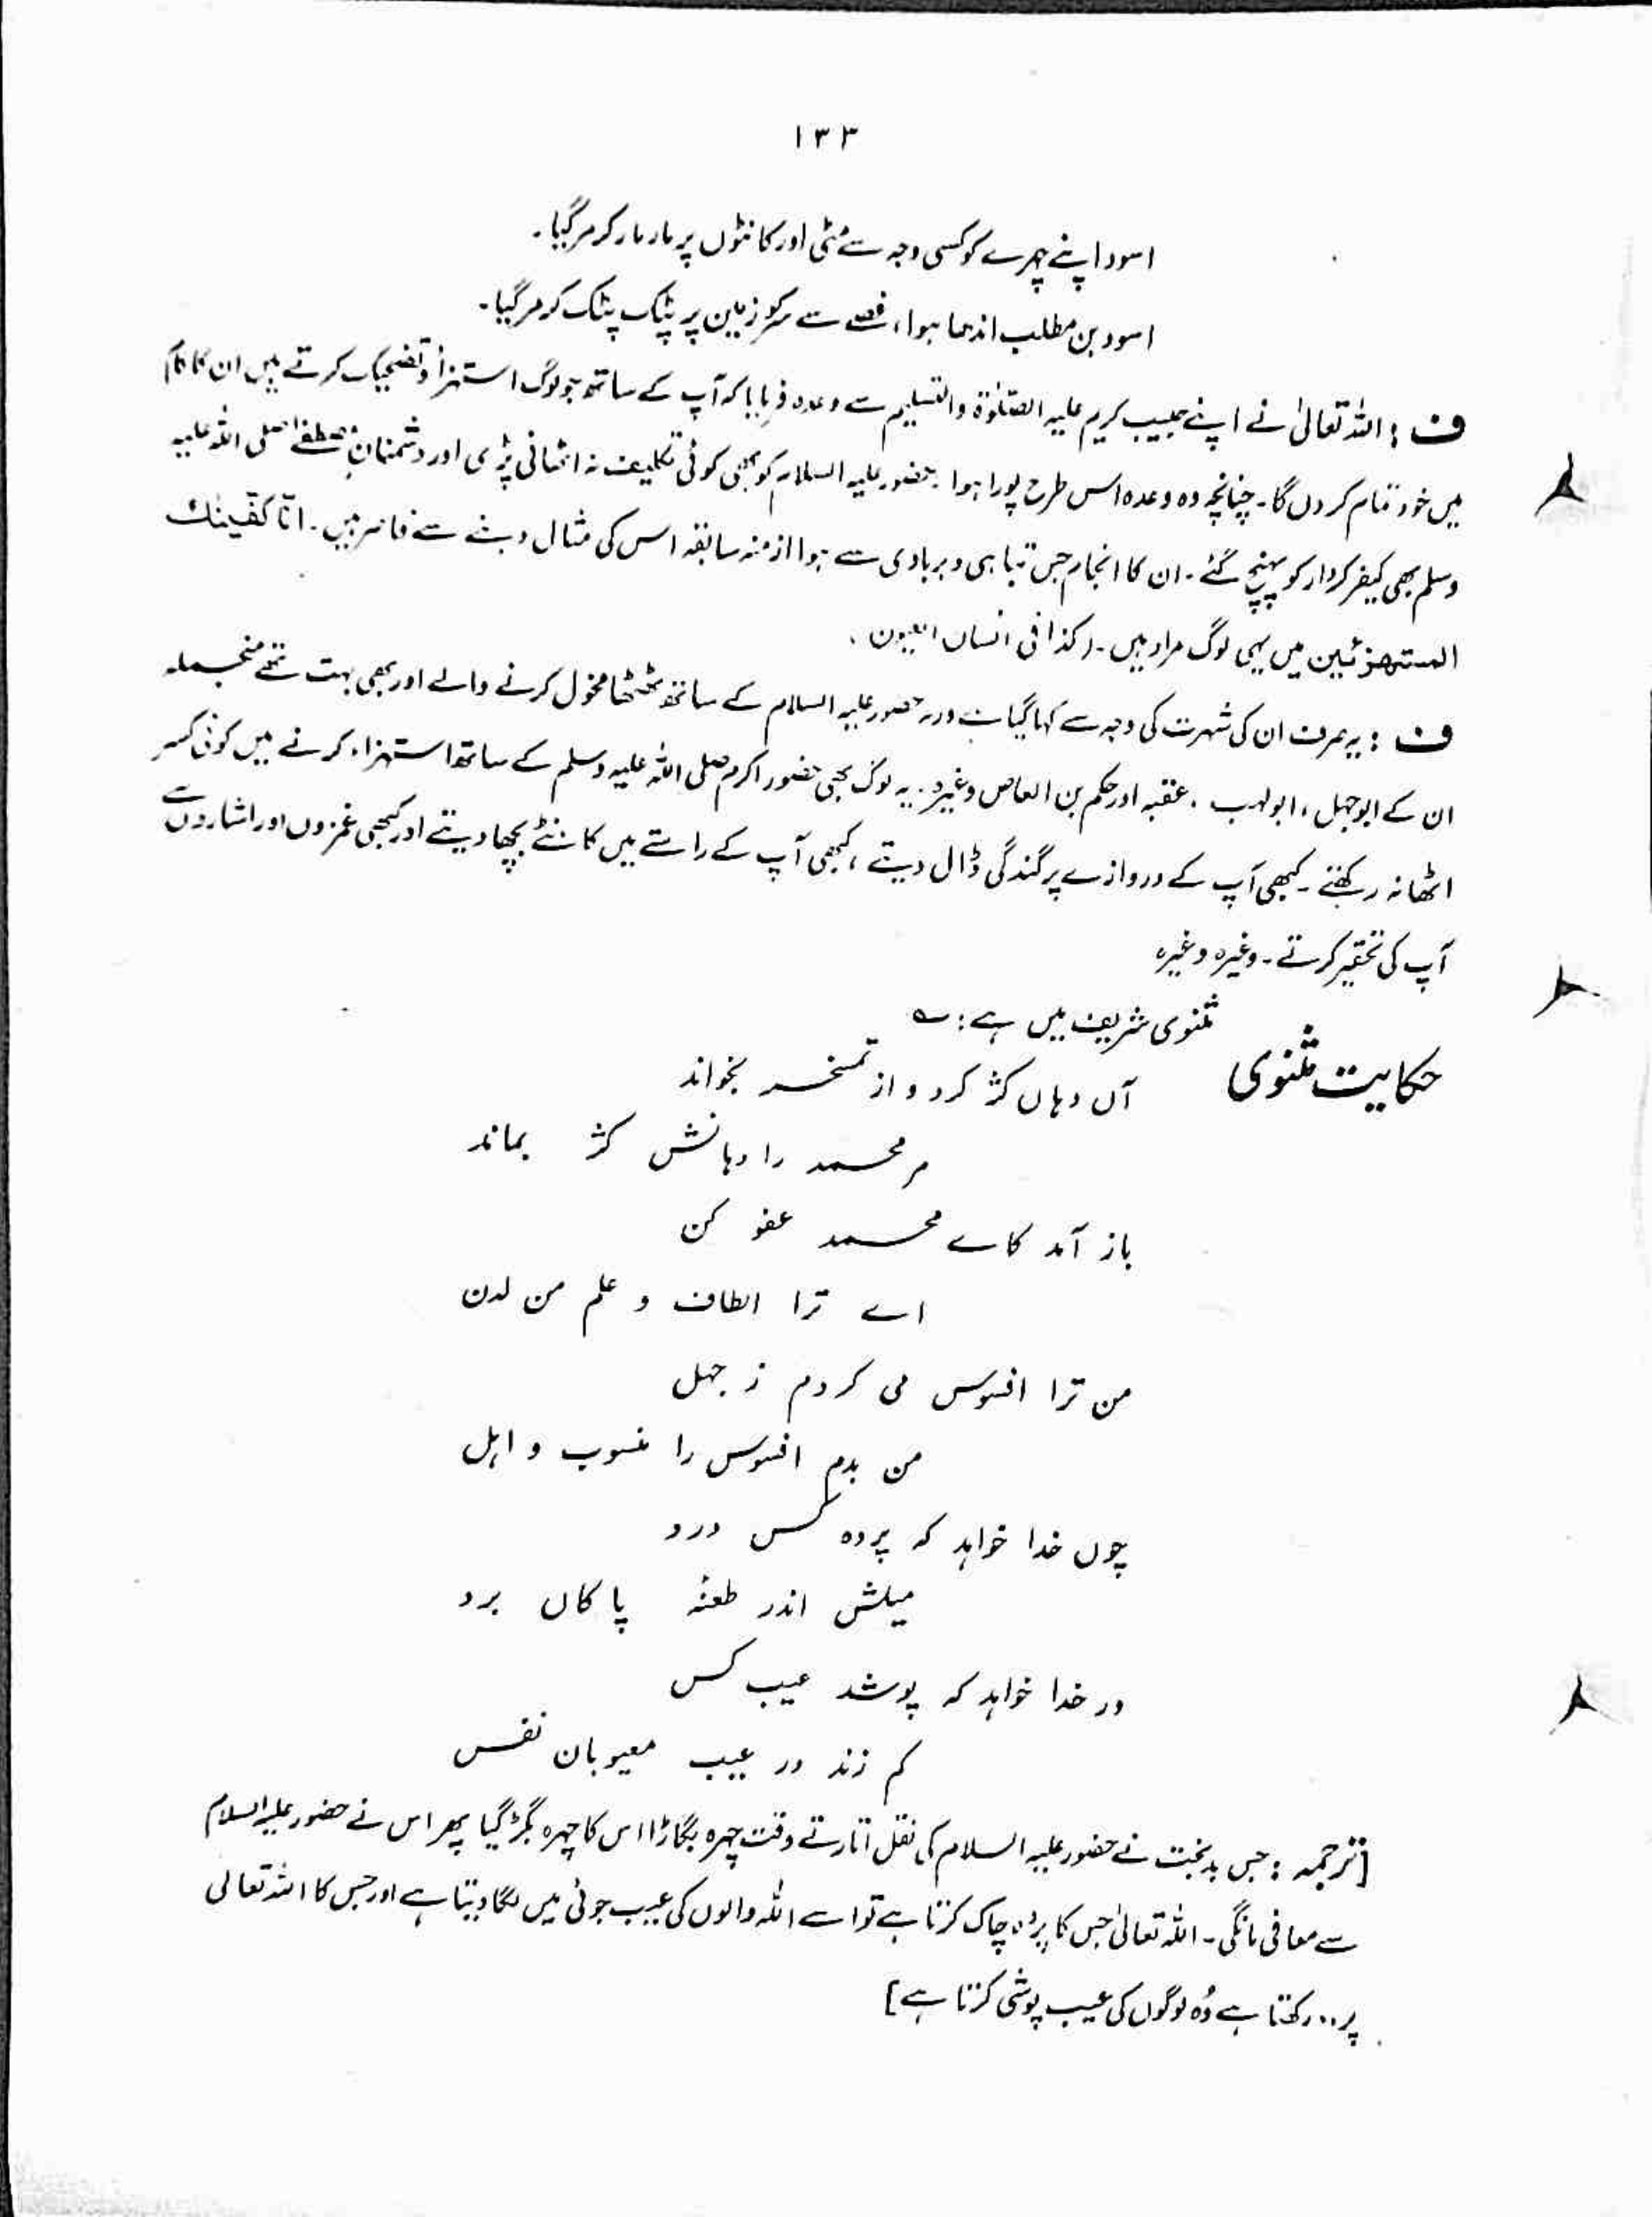 ۱۳۳
اسود اپنے چہرے کو کسی وجہ سے مٹی اور کانٹوں پر مار مار کر مر گیا۔
اسود بن مطلب اندھا ہوا، غصے سے سر کو زمین پر پٹک پٹک کر مر گیا۔
ف : اللہ تعالیٰ نے اپنے حبیب کریم علیہ الصلوٰۃ والتسلیم سے وعدہ فرمایا کہ آپ کے ساتھ جو لوگ استہزأ و تضحیک کرتے ہیں ان کا کام
میں خود تمام کر دوں گا۔ چنانچہ وہ وعدہ اس طرح پورا ہوا۔ حضور علیہ السلام کو بھی کوئی تکلیف نہ اٹھانی پڑی اور دشمنانِ مصطفےٰ صلی اللہ علیہ
وسلم بھی کیفر کردار کو پہنچ گئے۔ ان کا انجام جس تباہی و بربادی سے ہوا ازمنہ سابقہ اس کی مثال دینے سے قاصر ہیں۔ انّا کفّینٰک
المستھزئین میں یہی لوگ مراد ہیں۔ (کذا فی انسان العیون۔
ف : یہ صرف ان کی شہرت کی وجہ سے کہا گیا ہے ورنہ حضور علیہ السلام کے ساتھ ٹھٹھا مخول کرنے والے اور بھی بہت تھے منجملہ
ان کے ابوجہل، ابولہب، عقبہ اور حکم بن العاص وغیرہ۔ یہ لوگ بھی حضور اکرم صلی اللہ علیہ وسلم کے ساتھ استہزاء کرنے میں کوئی کسر
اٹھا نہ رکھتے۔ کبھی آپ کے دروازے پر گندگی ڈال دیتے، کبھی آپ کے راستے میں کانٹے بچھا دیتے اور کبھی غمزوں اور اشاروں سے
آپ کی تحقیر کرتے۔ وغیرہ وغیرہ
حکایت مثنوی مثنوی شریف میں ہے : ؎
آں دہاں کژ کرد و از تمسخر بخواند
مر محمد را دہانش کژ بماند
باز آمد کاے محمد عفو کن
اے ترا الطاف و علم من لدن
من ترا افسوس می کردم ز جہل
من بدم افسوس را منسوب و اہل
چوں خدا خواہد کہ پردہ کس درد
میلش اندر طعنۂ پاکاں برد
ور خدا خواہد کہ پوشد عیب کس
کم زند در عیب معیوبان نفس
[ترجمہ : جس بدبخت نے حضور علیہ السلام کی نقل اتارتے وقت چہرہ بگاڑا اس کا چہرہ بگڑ گیا پھر اس نے حضور علیہ السلام
سے معافی مانگی۔ اللہ تعالیٰ جس کا پردہ چاک کرتا ہے تو اسے اللہ والوں کی عیب جوئی میں لگا دیتا ہے اور جس کا اللہ تعالی
رکھتا ہے وُہ لوگوں کی عیب پوشی کرتا ہے]